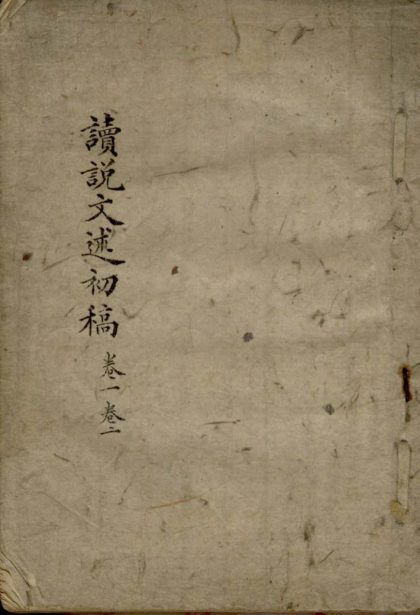 讀說文述初稿 卷一 卷二